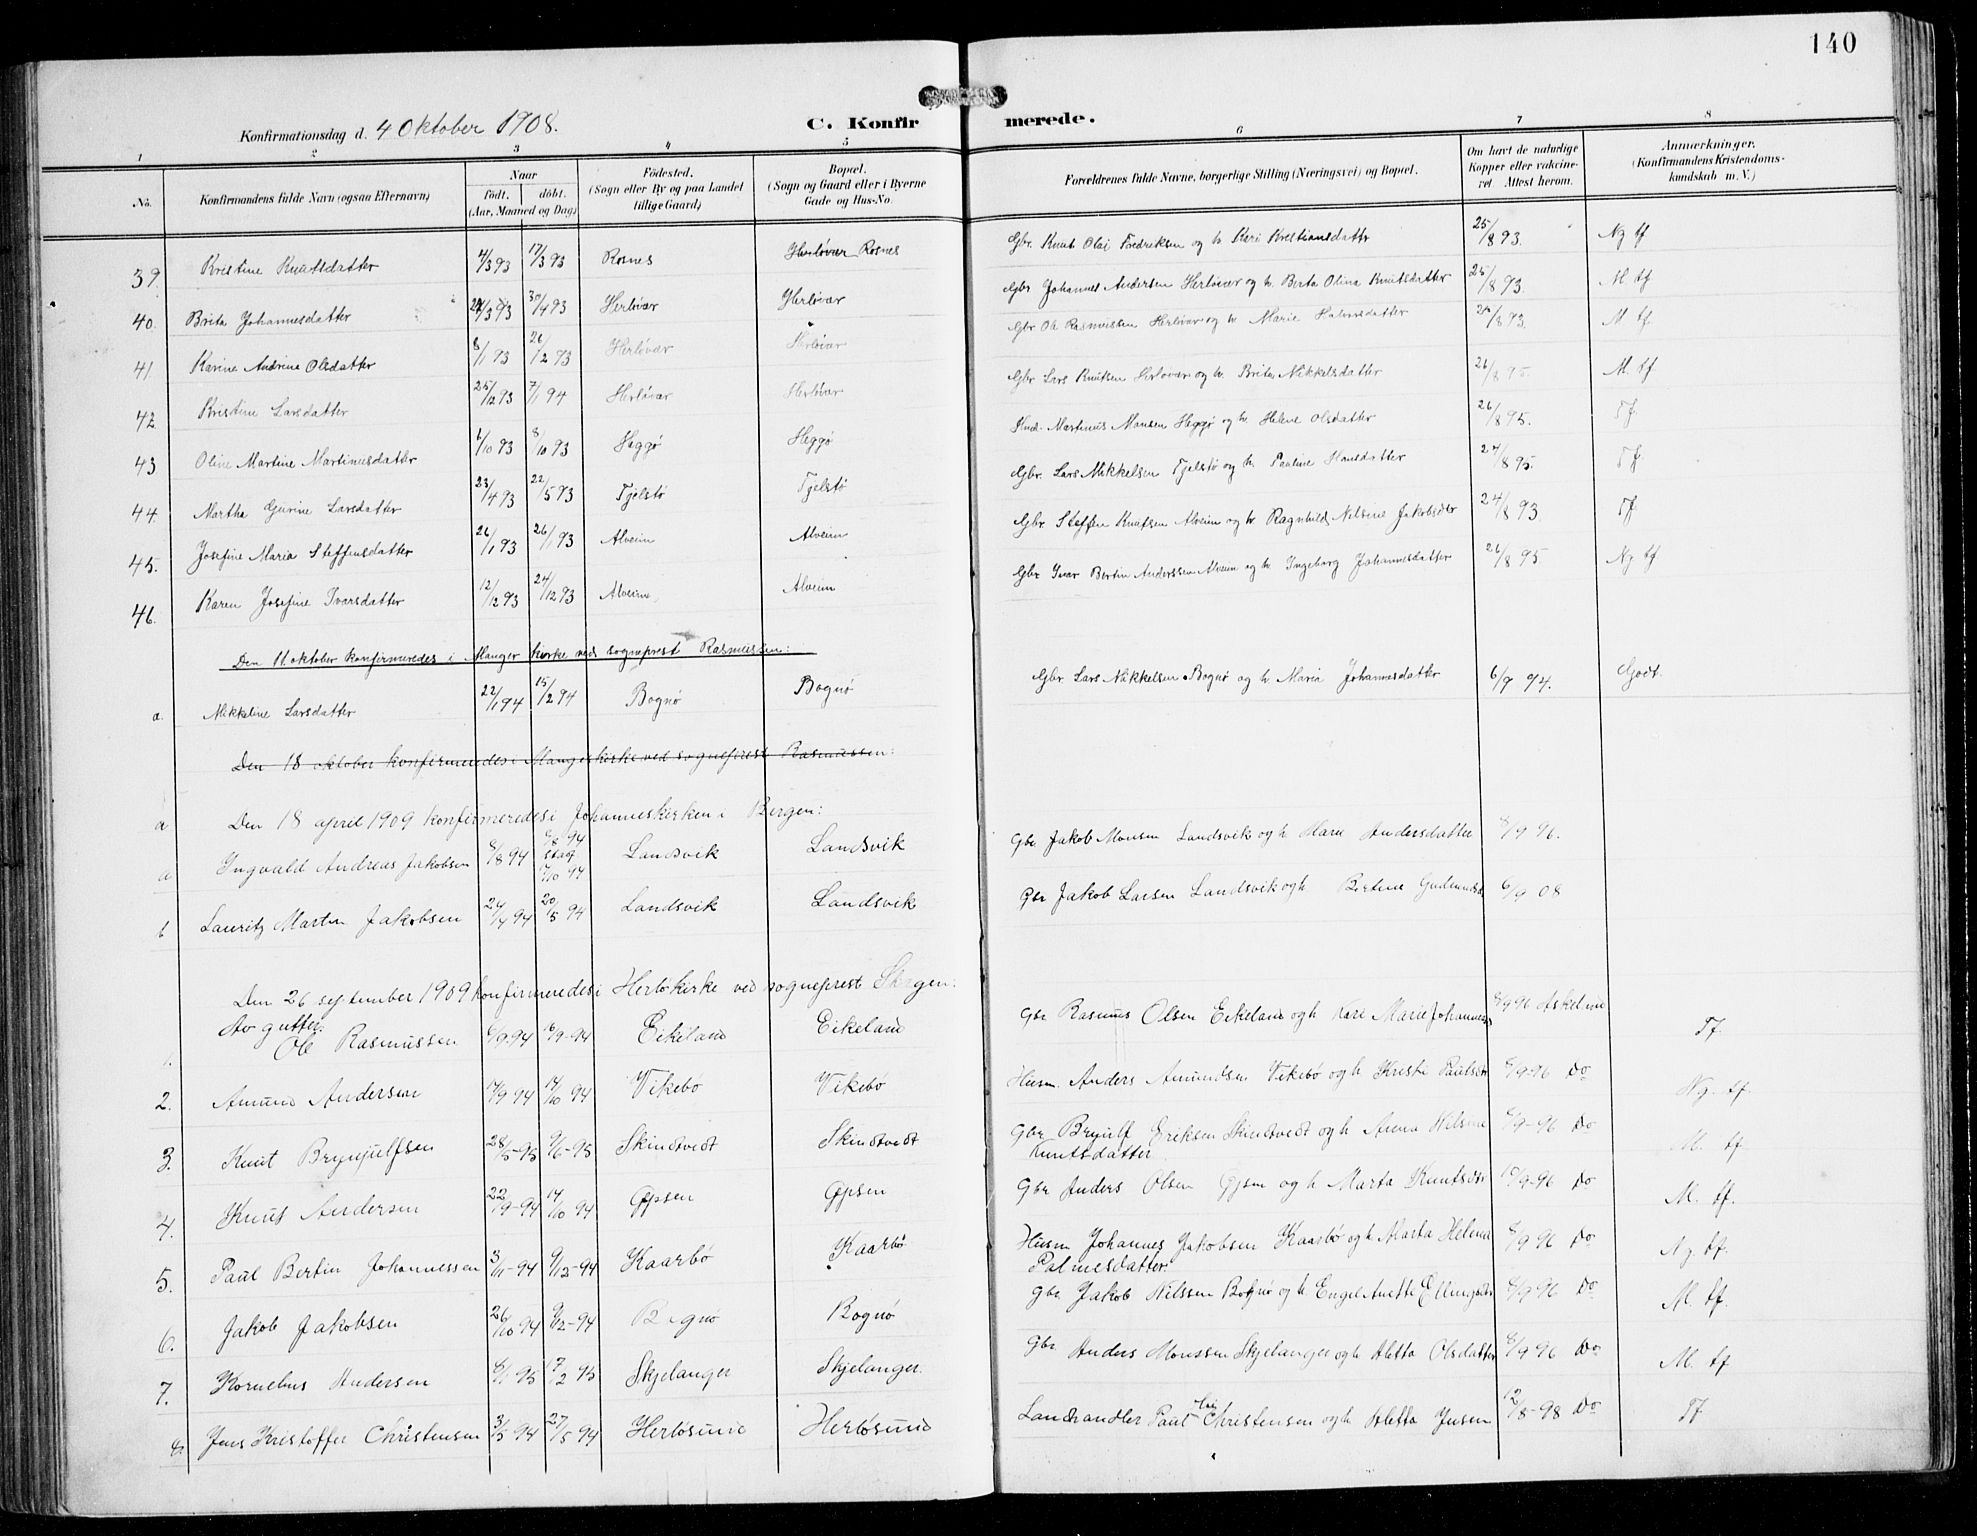 140
Konfirmationsdag d. 4 Oktober 1908.
C. Konfirmerede.
1 2 3 4 5 6 7 8
No.
Konfirmandens fulde Navn (ogsaa Efternavn)
Naar
født. døbt.
(Aar, Maaned og Dag)
Fødested.
(Sogn eller By og paa Landet
tillige Gaard)
Bopæl.
(Sogn og Gaard eller i Byerne
Gade og Hus-No.
Forældrenes fulde Navne, borgerlige Stilling (Næringsvei) og Bopæl.
Om havt de naturlige
Kopper eller vakcine-
ret. Attest herom.
Anmærkninger.
(Konfirmandens Kristendoms-
kundskab m. V.)
39. Kristine Knutsdatter 4/3 93 17/3 93 Rosnes Herløvær Rosnes Gbr. Knut Olai Fredriksen og h. Kari Kristiansdatter 25/8 93. Ng tf
40. Brita Johannesdatter 3/4 93 Herløvær Herløvær Gbr Johannes Andersen Herløvær og h. Berta Olina Knutsdatter 25/8 93. M tf
41 Karine Andrine Olsdatter 8/1 93 26/2 93 Herløvær Herløvær Gbr Ole Rasmussen Herløvær og h. Marie 8 93. M tf.
42 Kristine Larsdatter 25/12 93 7/1 94 Herløvær Herløvær Gbr Lars Knutsen Herløvær og h. Brita Mikkelsdatter 26/8 95. M. tf
43 Oline Martine Martinusdatter 1/10 93 8/10 93 Heggø Heggø Martinus Monsen Heggø og h. Helene Olsdatter 26/8 95. Tf
44. Martha Gurine Larsdatter 23/4 93 22/5 93 Fjelstø Fjelstø Gbr. Lars Mikkelsen Fjelstø og h. Pauline Hansdatter 24/8 95. Tf
45. Josefine Maria Steffensdatter 26/1 93 26/1 93 Alveim Alveim Gbr Steffen Knutsen Alveim og h. Ragnhild Nilsine Jakobsdtr 24/8 93. Tf
46. Karen Josefine Ivarsdatter 12/12 93 24/12 93 Alveim. Alveim Gbr Ivar Bertin Anderssen Alveim og h. Ingeborg Johannesdatter 26/8 95 Ng tf
Den 11 oktober konfirmeredes i Manger kirke ved sogneprest Rasmussen:
a. Mikkeline Larsdatter 22/1 94 15/2 94 Bognø Bognø Gbr Lars Mikkelsen Bognø og h. Maria Johannesdatter 6/9 94. Godt.
Den 18 oktober konfirmeredes i Manger kirke ved sogneprest Rasmussen:
a Den 18 april 1909 konfirmeredes i Johanneskirken i Bergen:
a Ingvald Andreas Jakobsen 8/8 94 8/8 94 stadf 7/10 94 Landsvik Landsvik Gbr Jakob Monsen Landsvik og h. Mari Andersdatter 8/9 96.
b Lauritz Martin Jakobsen 24/4 94 20/5 94 Landsvik Landsvik Gbr Jakob Larsen Landsvik og h Bertine 6/9 08
Den 26 september 1909 konfirmeredes i Herlø kirke ved sogneprest Skagen:
Av gutter:
1. Ole Rasmussen 6/9 94 16/9-94 Eikeland Eikeland Gbr Rasmus Olsen Eikeland og h Kari Marie 8/9 96 Tf
2. Amund Andersen 17/9 94 14/10 94 Vikebø Vikebø Husm. Anders Amundsen Vikebø og h Kristi Paulsdtr 8/9-96 Do Ng. tf.
3. Knut Brynjulfsen 28/5-95 9/6-95 Skindtvedt Skindtvedt Gbr Brynjulf Eriksen Skindtvedt og h Anna Nilsine
Knutsdatter 8/9-96 Do M. tf
4. Knut Andersen 22/9-94 14/10 94 Gjpsen Gjpsen Gbr Anders Olsen og h Marta Knutsdtr 10/9-96 Do M. tf.
5. Paul Bertin Johannessen 3/11-94 9/12-94 Kaarbø Kaarbø Husm Johannes Jakobsen Kaarbø og h Marta Helena
Palmesdatter. 8/9 96 Do Ng. tf.
6. Jakob Jakobsen 26/10 94 9/12-94 Bognø Bognø Gbr Jakob Nilssen Bognø og h Engel Anette 8/9 96 Do M. tf.
7. Kornelius Andersen 6/1 95 17/2 95 Skjelanger Skjelanger. Gbr Anders Monssen Skjelanger og h Aletta Olsdatter 8/9 96 Do M. tf
8. Jens Kristoffer Christensen 3/3 94 27/5 94 Herløsund Herløsund Landhandler Paul Christensen og h Aletta Jensen 12/8-98 Do Tf